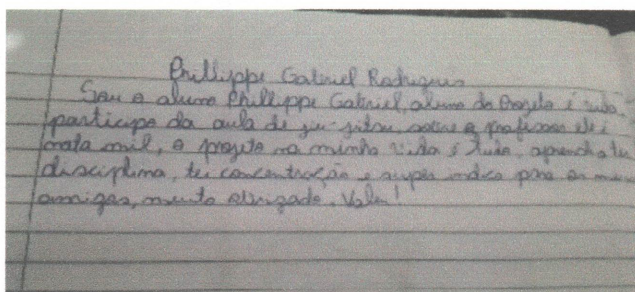 Phillippe Gabriel Rodrigues
Sou o aluno Phillippe Gabriel, aluno do Projeto é tudo,
participo da aula de jiu-jitsu, sobre o professor ele é
nota mil, o projeto na minha vida é tudo, aprendi a ter
disciplina, ter concentração e super indico para os meus
amigos, muito obrigado. Valeu!